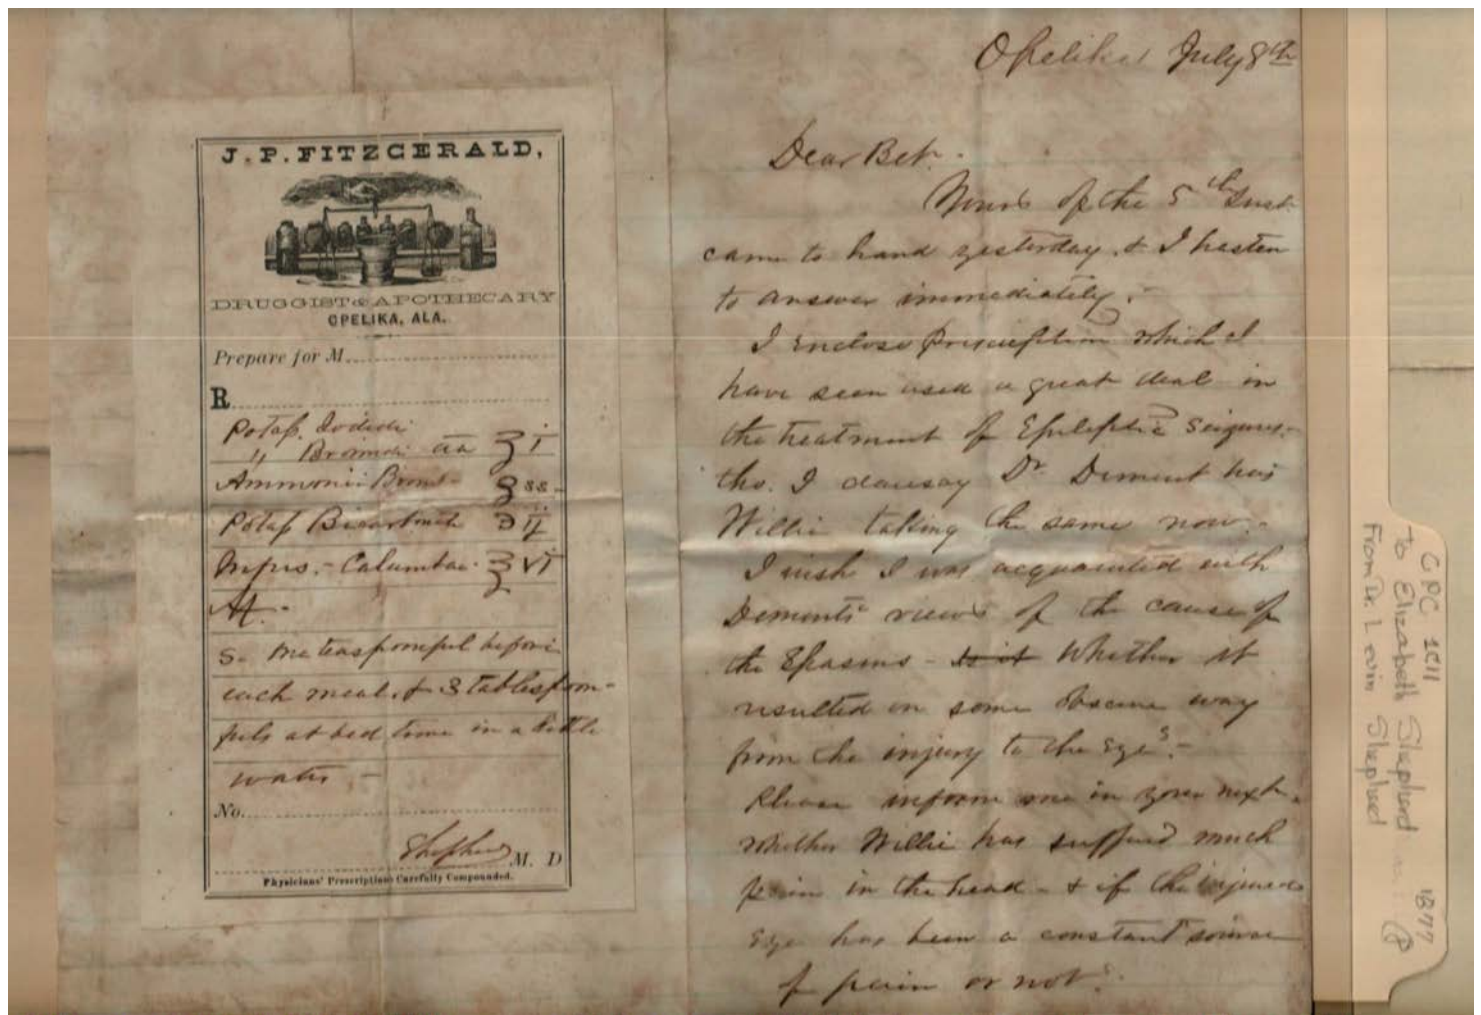 J. P. FITZGERALD,
DRUGGIST & APOTHECARY
OPELIKA, ALA.
Prepare for M
R
Potass. Iodidi
" Bromidi aa ʒ i
Ammonii Brom- ʒ ss-
Potass Bicarbonate ℈ ij
Infus.- Calumbae- ℥ vi
S- One teaspoonful before
each meal, & 3 tablespoon-
fuls at bed time in a little
water.-
No.
Shepherd M. D
Physicians' Prescriptions Carefully Compounded.
Opelika July 8th
Dear Bet.
Yours of the 5th Inst
came to hand yesterday, & I hasten
to answer immediately.-
I enclose prescription which I
have seen used a great deal in
the treatment of Epileptic seizures-
tho. I daresay Dr. Dement has
Willie taking the same now.-
I wish I was acquainted with
Dements views of the cause of
the Spasms - Is it Whether it
resulted in some obscure way
from the injury to the Eye?-
Please inform me in your next.
Whether Willie has suffered much
pain in the head - & if the injured
Eye has been a constant source
of pain or not?
CPC 1811 1877
to Elizabeth Shephard
From Dr. Levin Shephard